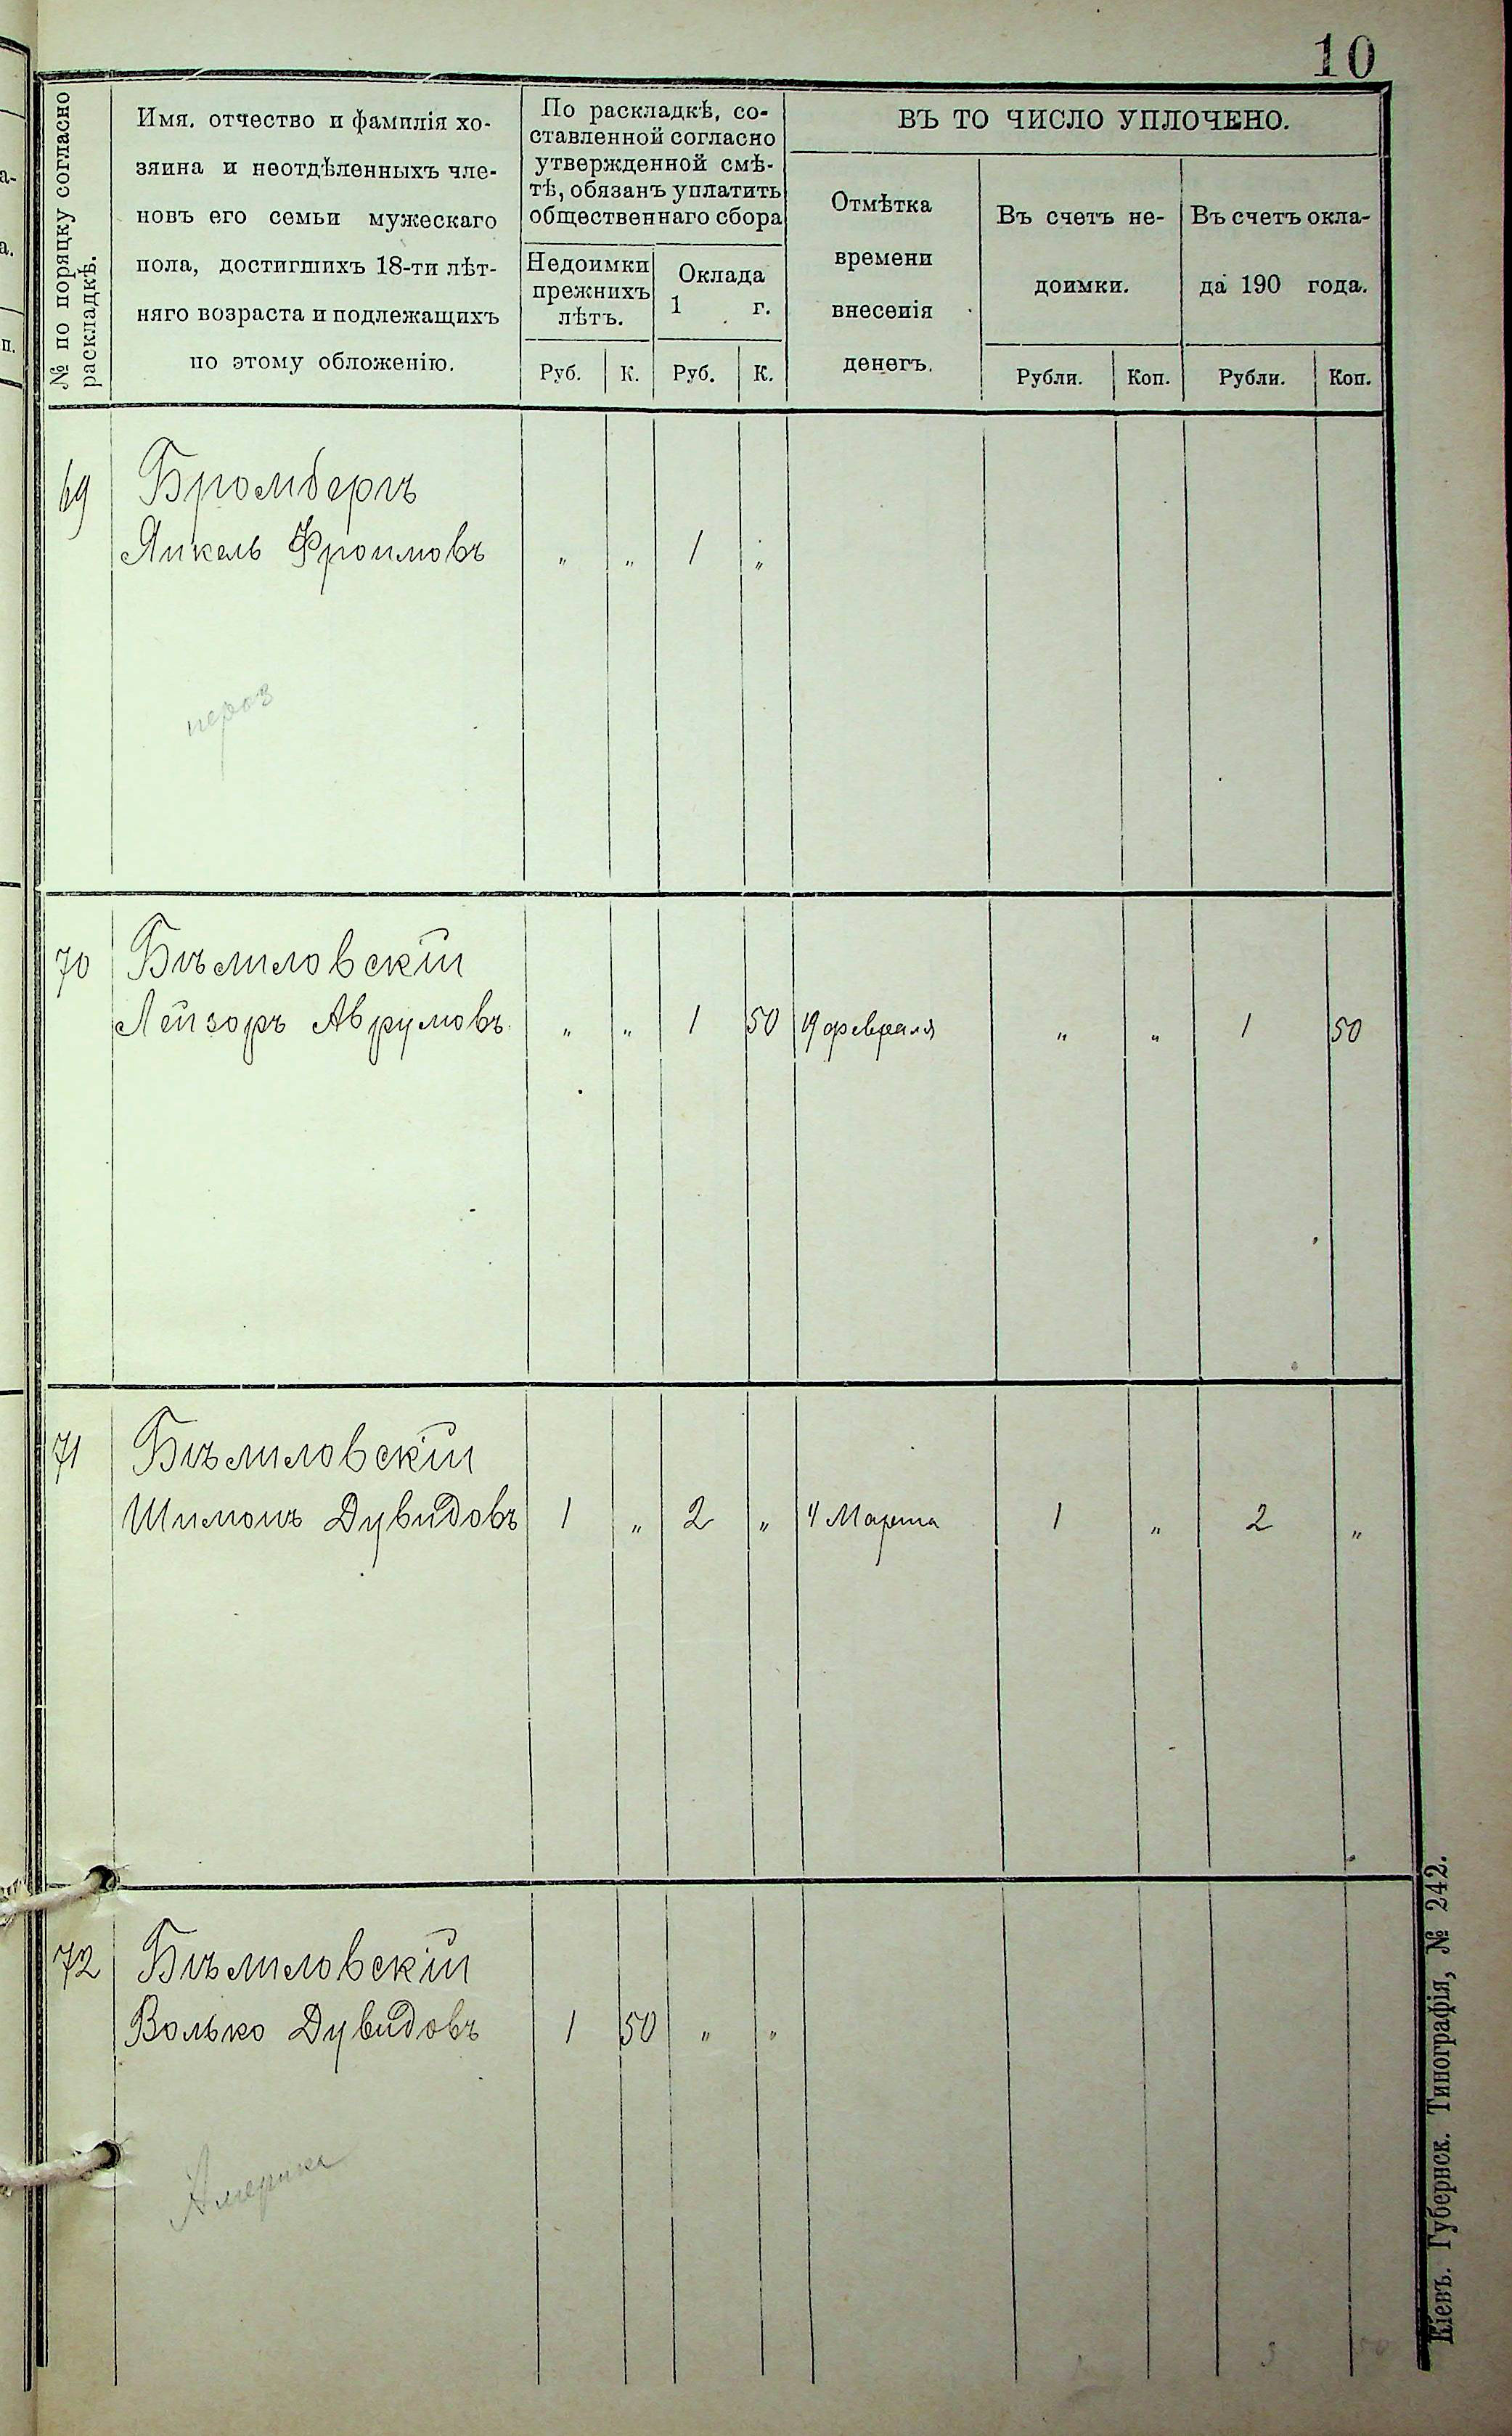 10
№ по поряцку согласно
раскладкѣ.
Имя, отчество и фамилія хо-
зяина и неотдѣленныхъ чле-
новъ его семьи мужескаго
пола, достигшихъ 18-ти лѣт-
няго возраста и подлежащихъ
по этому обложенію.
По раскладкѣ, со-
ставленной согласно
утвержденной смѣ-
тѣ, обязанъ уплатить
общественнаго сбора
Недоимки
прежнихъ
лѣтъ.
Оклада
1 г.
Руб. К. Руб. К.
ВЪ ТО ЧИСЛО УПЛОЧЕНО.
Отмѣтка
времени
внесенія
денегъ.
Въ счетъ не-
доимки.
Въ счетъ окла-
да 190 года.
Рубли. Коп. Рубли. Коп.
69 Бромбергъ
Янкель Фроимовъ „ „ 1 „
70 Бѣлиловскій
Лейзоръ Аврумовъ „ „ 1 50 19 февраля „ „ 1 50
71 Бѣлиловскій
Шимонъ Дувидовъ 1 „ 2 „ 4 Марта 1 „ 2 „
72 Бѣлиловскій
Волько Дувидовъ 1 50 „ „
Америка
3 50
Кіевъ. Губернск. Типографія, № 242.